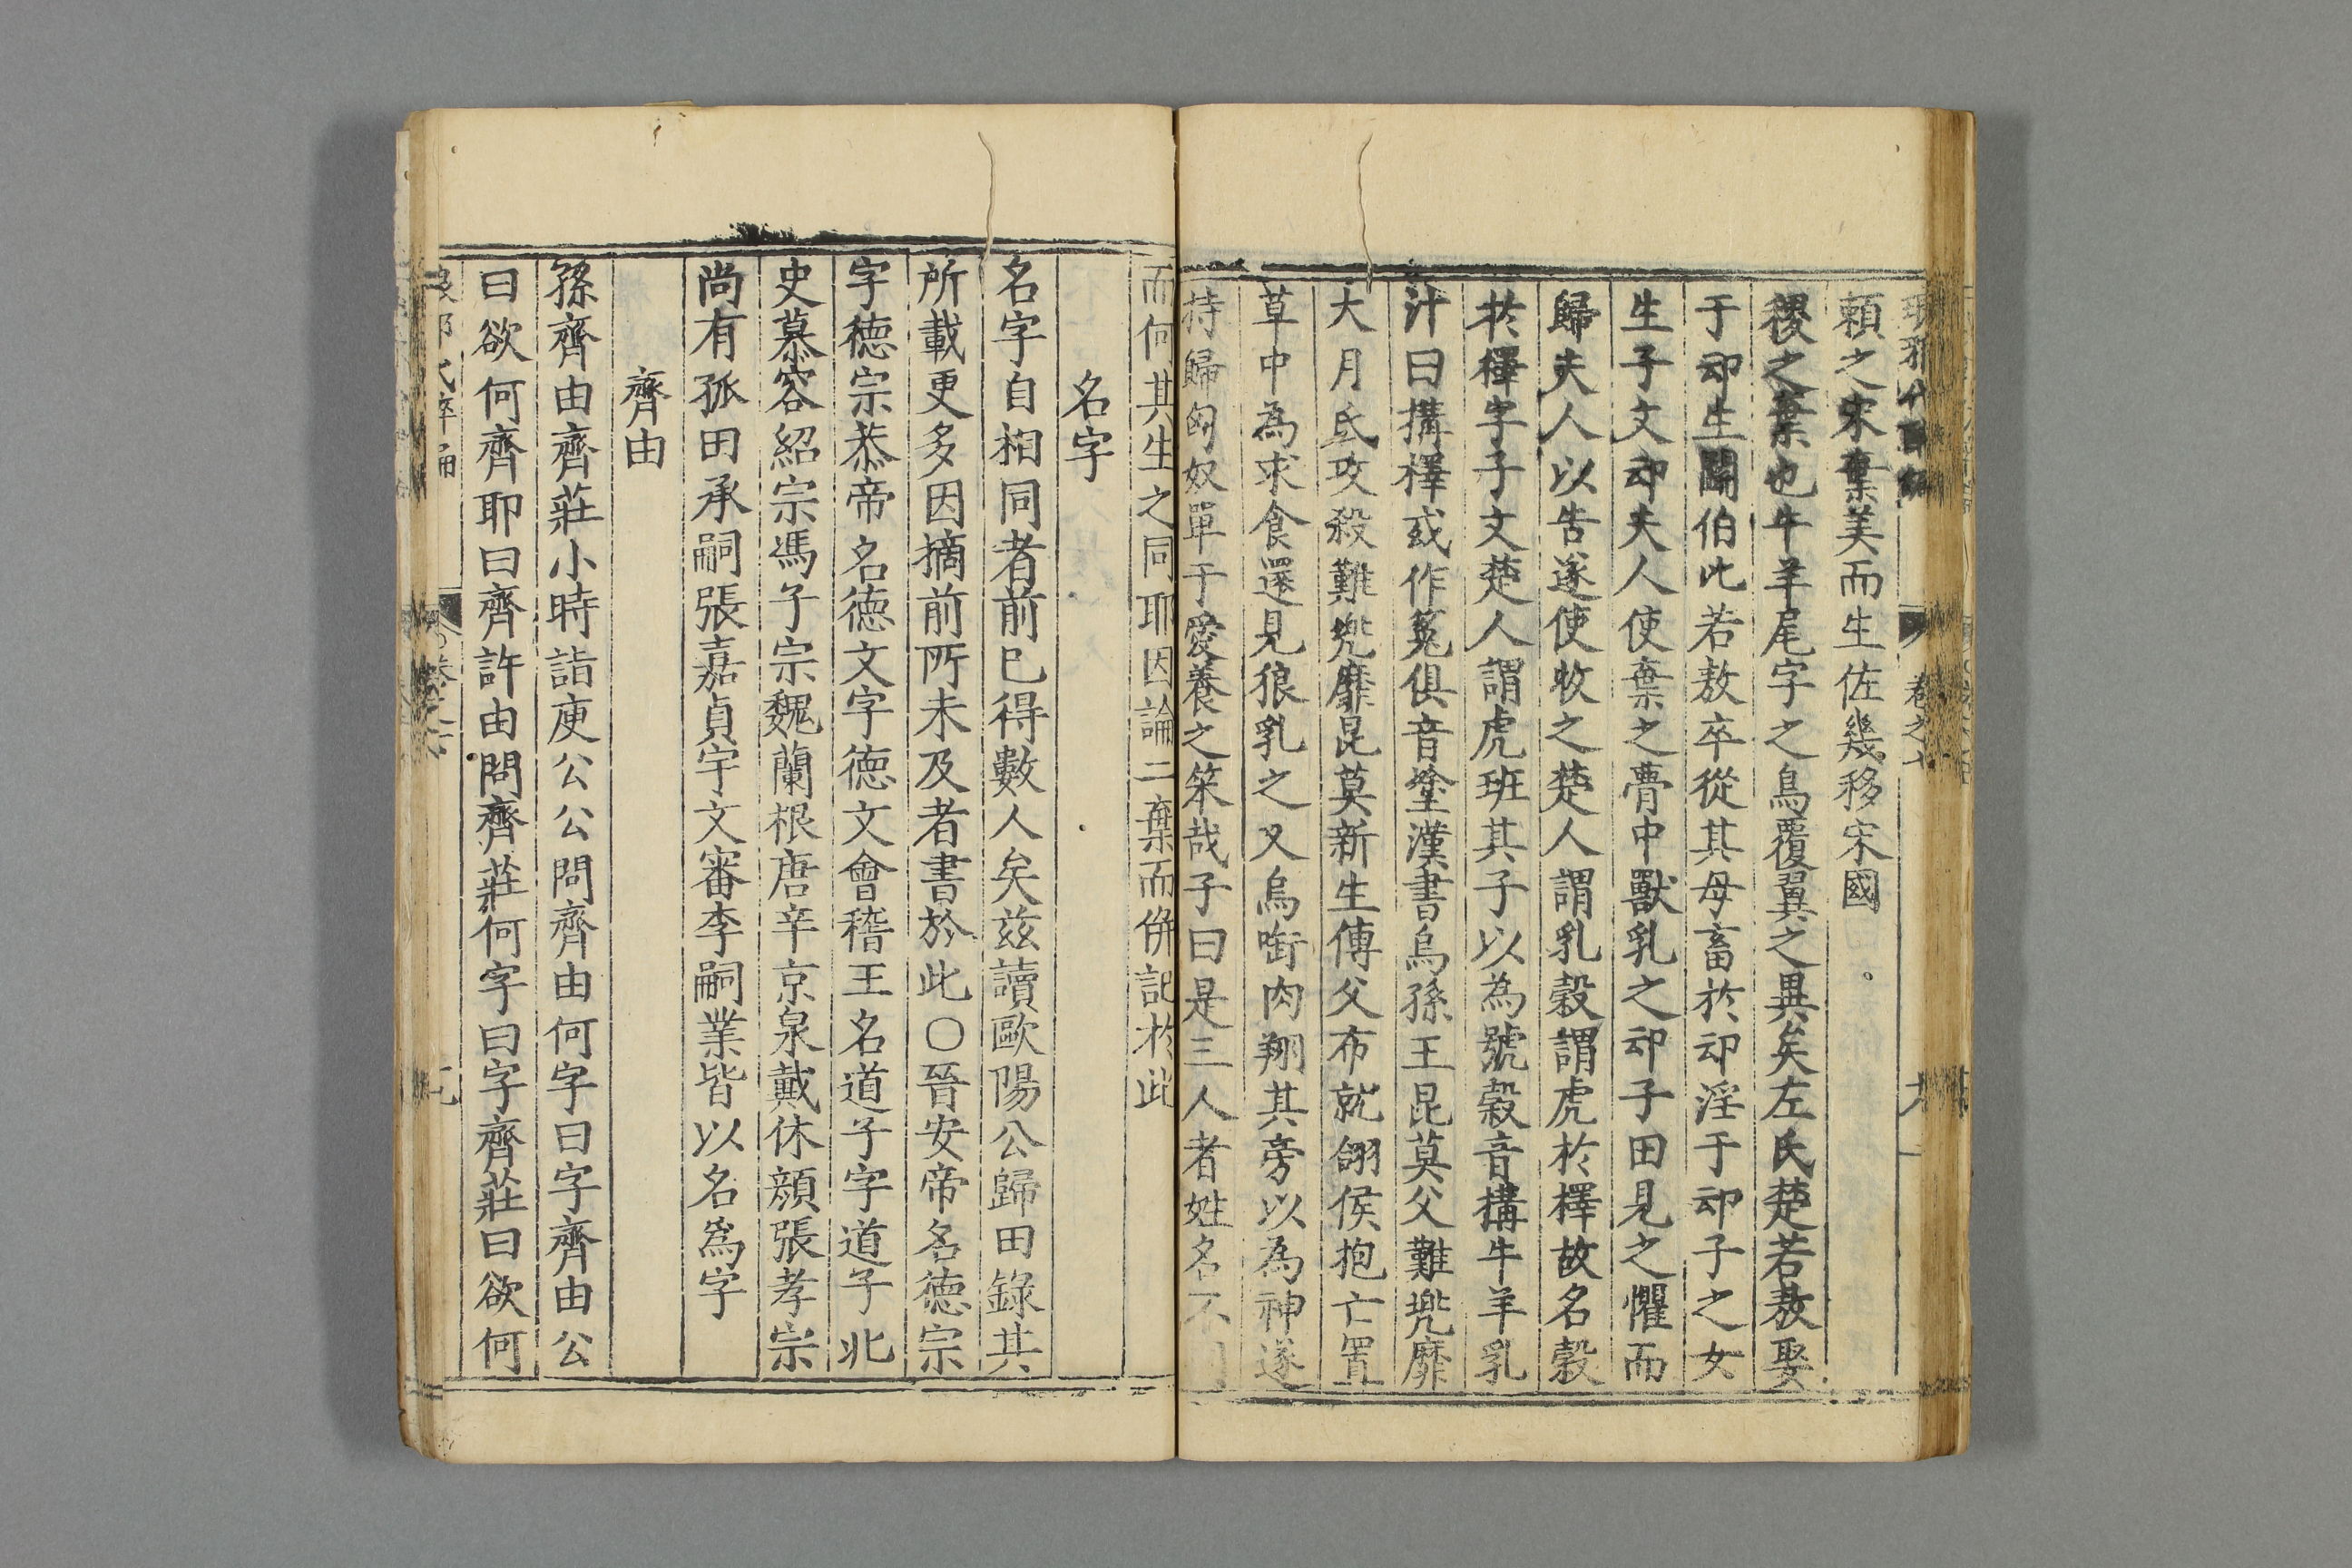 頼之宋棄美而生佐幾移宋國
稷之棄也牛羊尾字之鳥覆翼之異矣左氏楚若敖娶
于䢵生鬭伯比若敖卒從其母畜於䢵淫于䢵子之女
生子文䢵夫人使棄之夢中獸乳之䢵子田見之懼而
歸夫人以告遂使收之楚人謂乳穀謂虎於檡故名穀
於檡字子文楚人謂虎班其子以為號穀音搆牛羊乳
汁曰搆檡或作菟俱音塗漢書烏孫王昆莫父難兜靡
大月氏攻殺難兜靡昆莫新生傅父布就翖侯抱亡置
草中為求食還見狼乳之又烏啣肉翔其旁以為神遂
持歸匈奴單于愛養之笨哉子曰是三人者姓名不同
而何其生之同耶因論二棄而併記於此
名字
名字自相同者前已得數人矣兹讀歐陽公歸田錄其
所載更多因摘前所未及者書於此〇晉安帝名德宗
字德宗恭帝名德文字德文會稽王名道子字道子北
史慕容紹宗馮子宗魏蘭根唐辛京杲戴休顔張孝宗
尚有孤田承嗣張嘉貞宇文審李嗣業皆以名為字
齊由
孫齊由齊莊小時詣庾公公問齊由何字曰字齊由公
曰欲何齊耶曰齊許由問齊莊何字曰字齊莊曰欲何